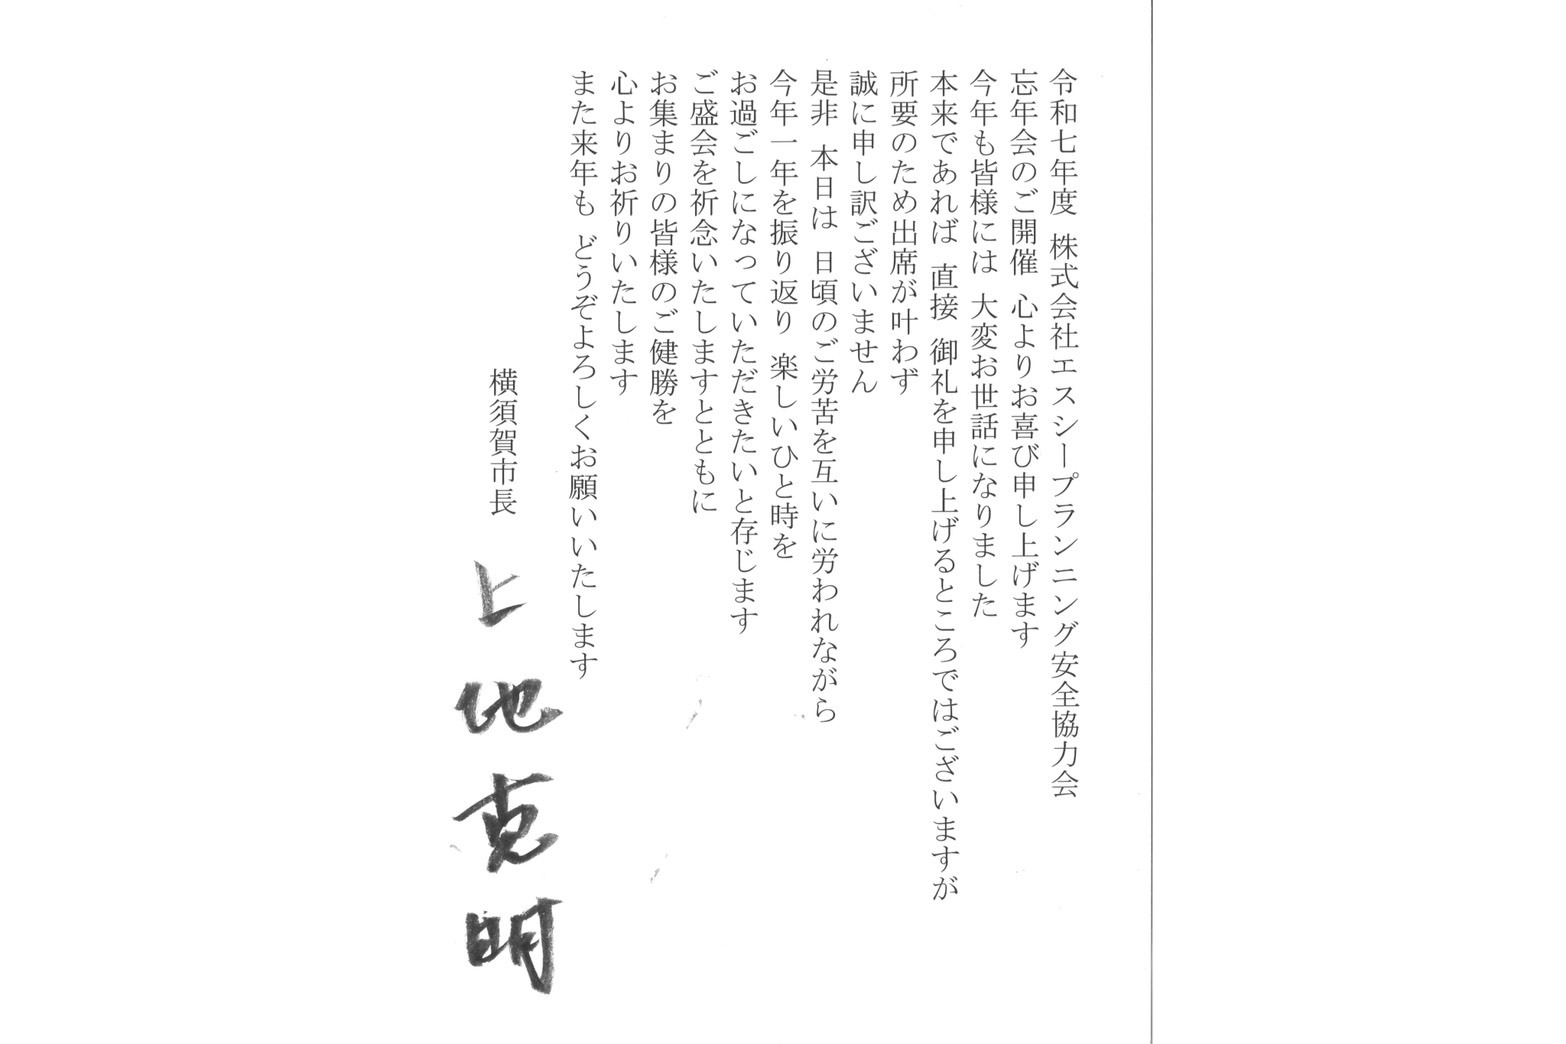 令和七年度 株式会社エスシープランニング安全協力会
忘年会のご開催 心よりお喜び申し上げます
今年も皆様には 大変お世話になりました
本来であれば 直接 御礼を申し上げるところではございますが
所要のため出席が叶わず
誠に申し訳ございません
是非 本日は 日頃のご労苦を互いに労われながら
今年一年を振り返り 楽しいひと時を
お過ごしになっていただきたいと存じます
ご盛会を祈念いたしますとともに
お集まりの皆様のご健勝を
心よりお祈りいたします
また来年も どうぞよろしくお願いいたします
横須賀市長 上地克明